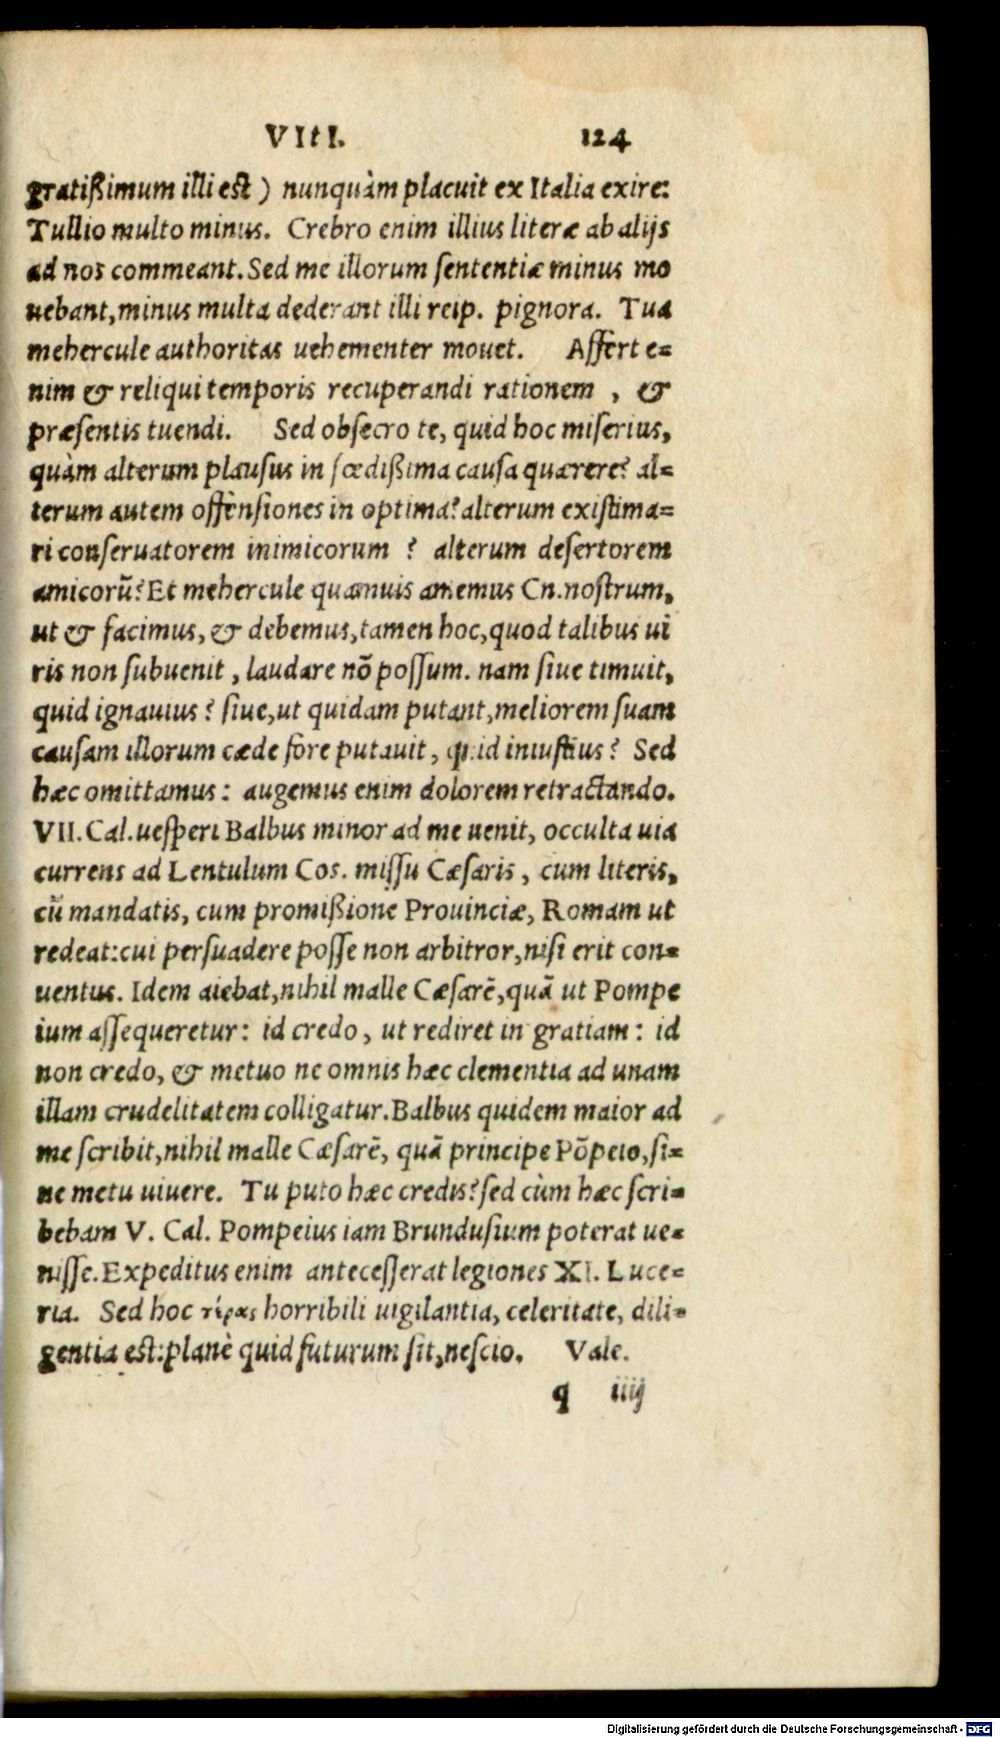 VIII. 124
gratißimum illi est) nunquàm placuit ex Italia exire:
Tullio multo minus. Crebro enim illius literæ ab alijs
ad nos commeant. Sed me illorum sententiæ minus mo
uebant, minus multa dederant illi reip. pignora. Tua
mehercule authoritas uehementer mouet. Affert e=
nim & reliqui temporis recuperandi rationem , &
præsentis tuendi. Sed obsecro te, quid hoc miserius,
quàm alterum plausus in fœdißima causa quærere? al=
terum autem offensiones in optima? alterum existima=
ri conseruatorem inimicorum ? alterum desertorem
amicorũ? Et mehercule quamuis amemus Cn. nostrum,
ut & facimus, & debemus, tamen hoc, quod talibus ui
ris non subuenit , laudare nõ possum. nam siue timuit,
quid ignauius? siue, ut quidam putant, meliorem suam
causam illorum cæde fore putauit , quid iniustius? Sed
hæc omittamus: augemus enim dolorem retractando.
VII. Cal. uesperi Balbus minor ad me uenit, occulta uia
currens ad Lentulum Cos. missu Cæsaris , cum literis,
cũ mandatis, cum promißione Prouinciæ, Romam ut
redeat: cui persuadere posse non arbitror, nisi erit con=
uentus. Idem aiebat, nihil malle Cæsarẽ, quã ut Pompe
ium assequeretur: id credo, ut rediret in gratiam: id
non credo, & metuo ne omnis hæc clementia ad unam
illam crudelitatem colligatur. Balbus quidem maior ad
me scribit, nihil malle Cæsarẽ, quã principe Põpeio, si=
ne metu uiuere. Tu puto hæc credis? sed cùm hæc scri=
bebam V. Cal. Pompeius iam Brundusium poterat ue=
nisse. Expeditus enim antecesserat legiones XI. Luce=
ria. Sed hoc τέρας horribili uigilantia, celeritate, dili=
gentia est: planè quid futurum sit, nescio. Vale.
q iiij
Digitalisierung gefördert durch die Deutsche Forschungsgemeinschaft - DFG